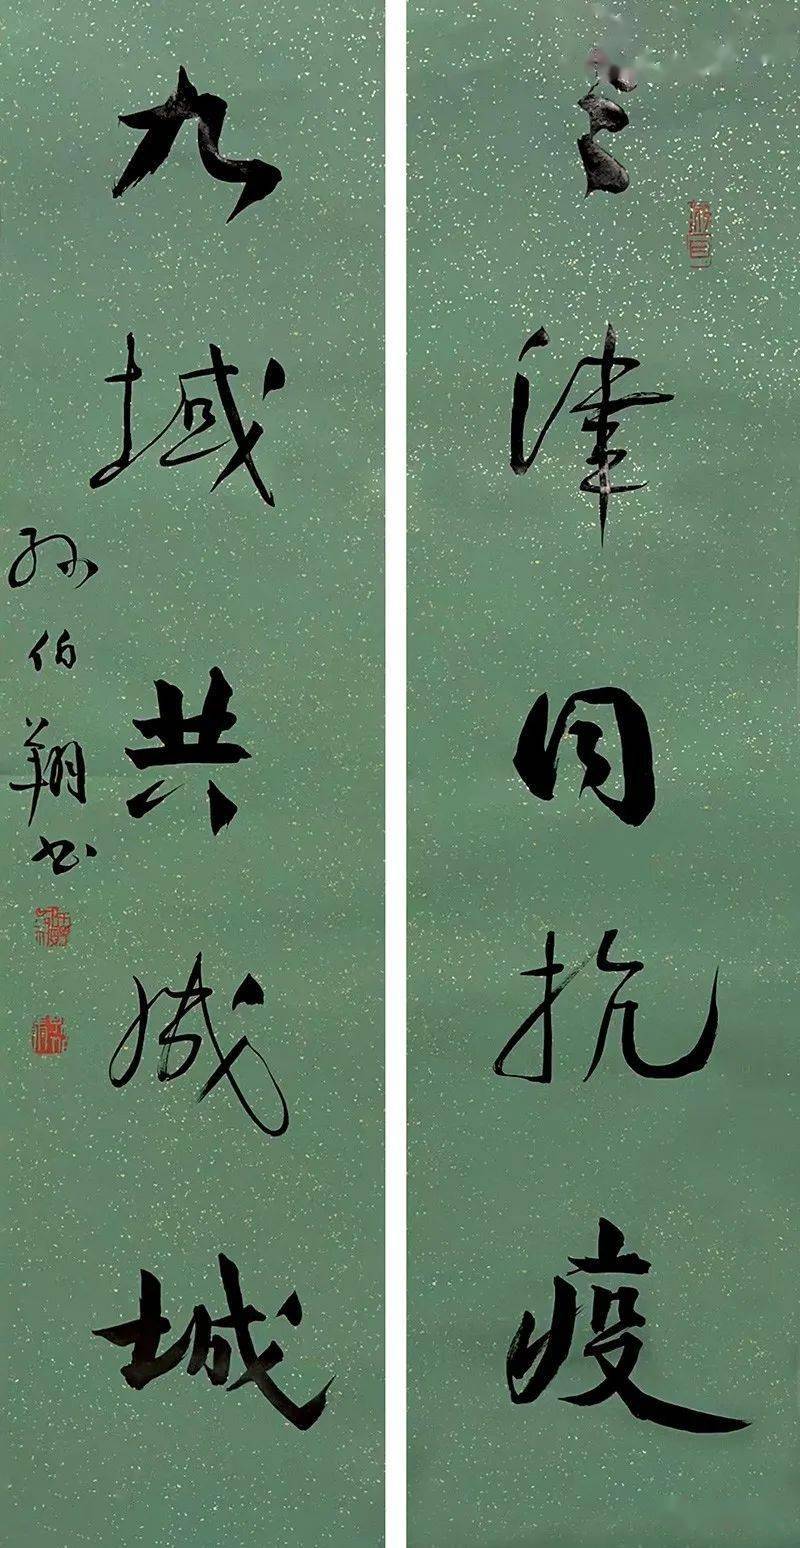 三津同抗疫
九域共成城
孙伯翔书